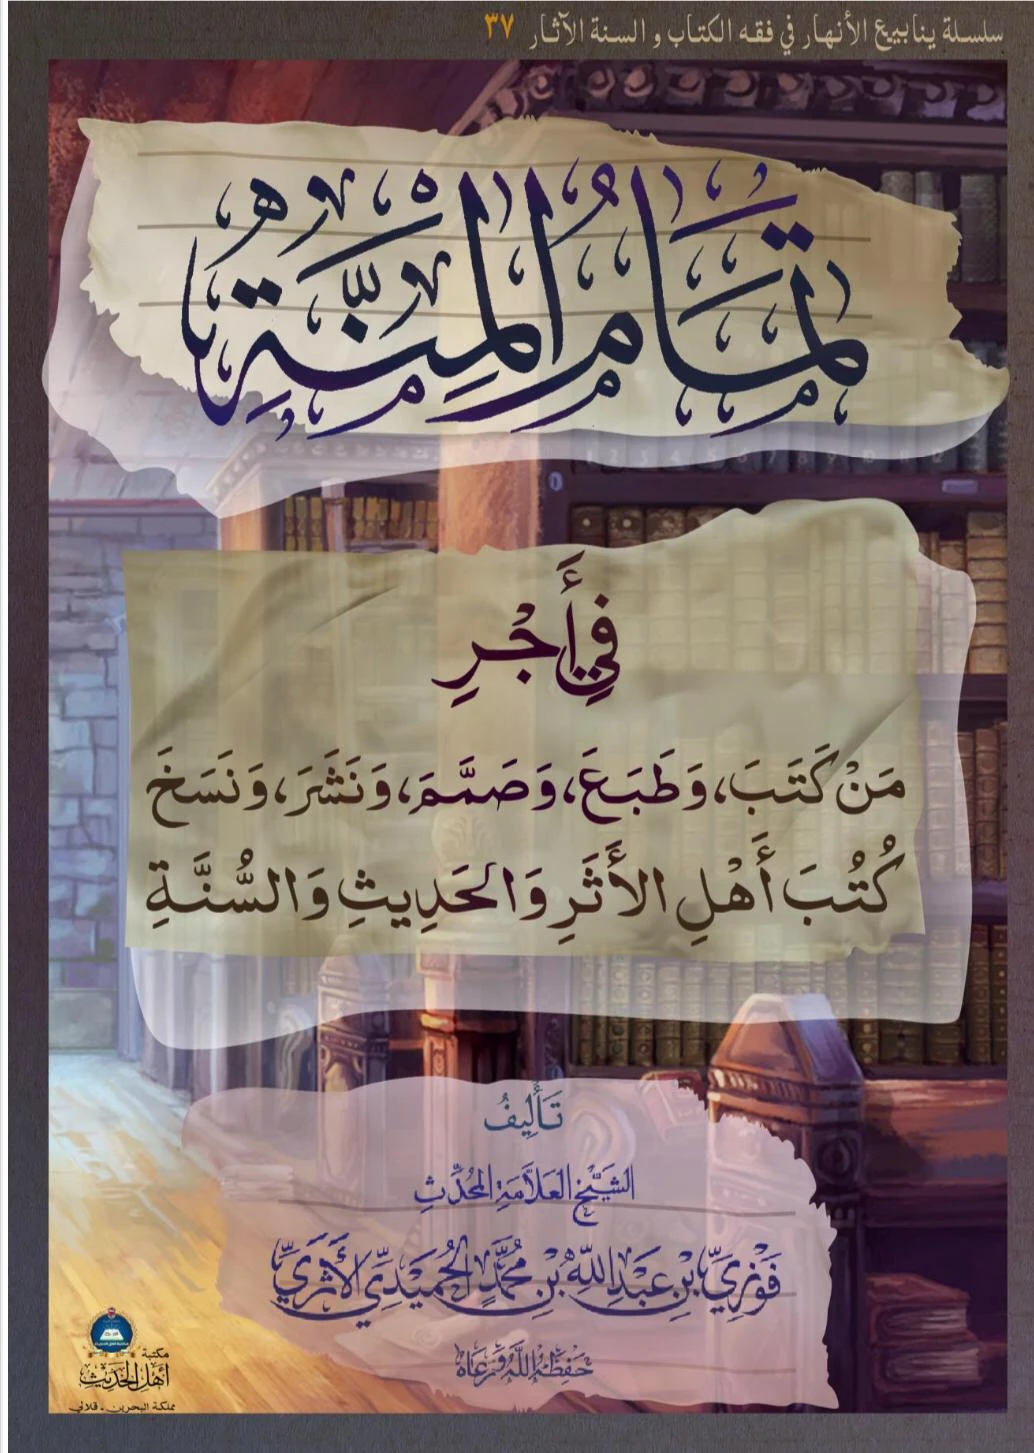 سلسلة ينابيع الأنهار في فقه الكتاب و السنة الآثار ٣٧
تَمَامُ الْمِنَّةِ
فِي أَجْرِ
مَنْ كَتَبَ، وَطَبَعَ، وَصَمَّمَ، وَنَشَرَ، وَنَسَخَ
كُتُبَ أَهْلِ الأَثَرِ وَالحَدِيثِ وَالسُّنَّةِ
تَأْلِيفُ
الشَّيْخِ العَلَّامَةِ المُحَدِّثِ
فَوْزِيِّ بْنِ عَبْدِ اللَّهِ بْنِ مُحَمَّدٍ الحُمَيْدِيِّ الأَثَرِيِّ
حَفِظَهُ اللَّهُ وَرَعَاهُ
مكتبة
أهل الحديث
مملكة البحرين - قلالي